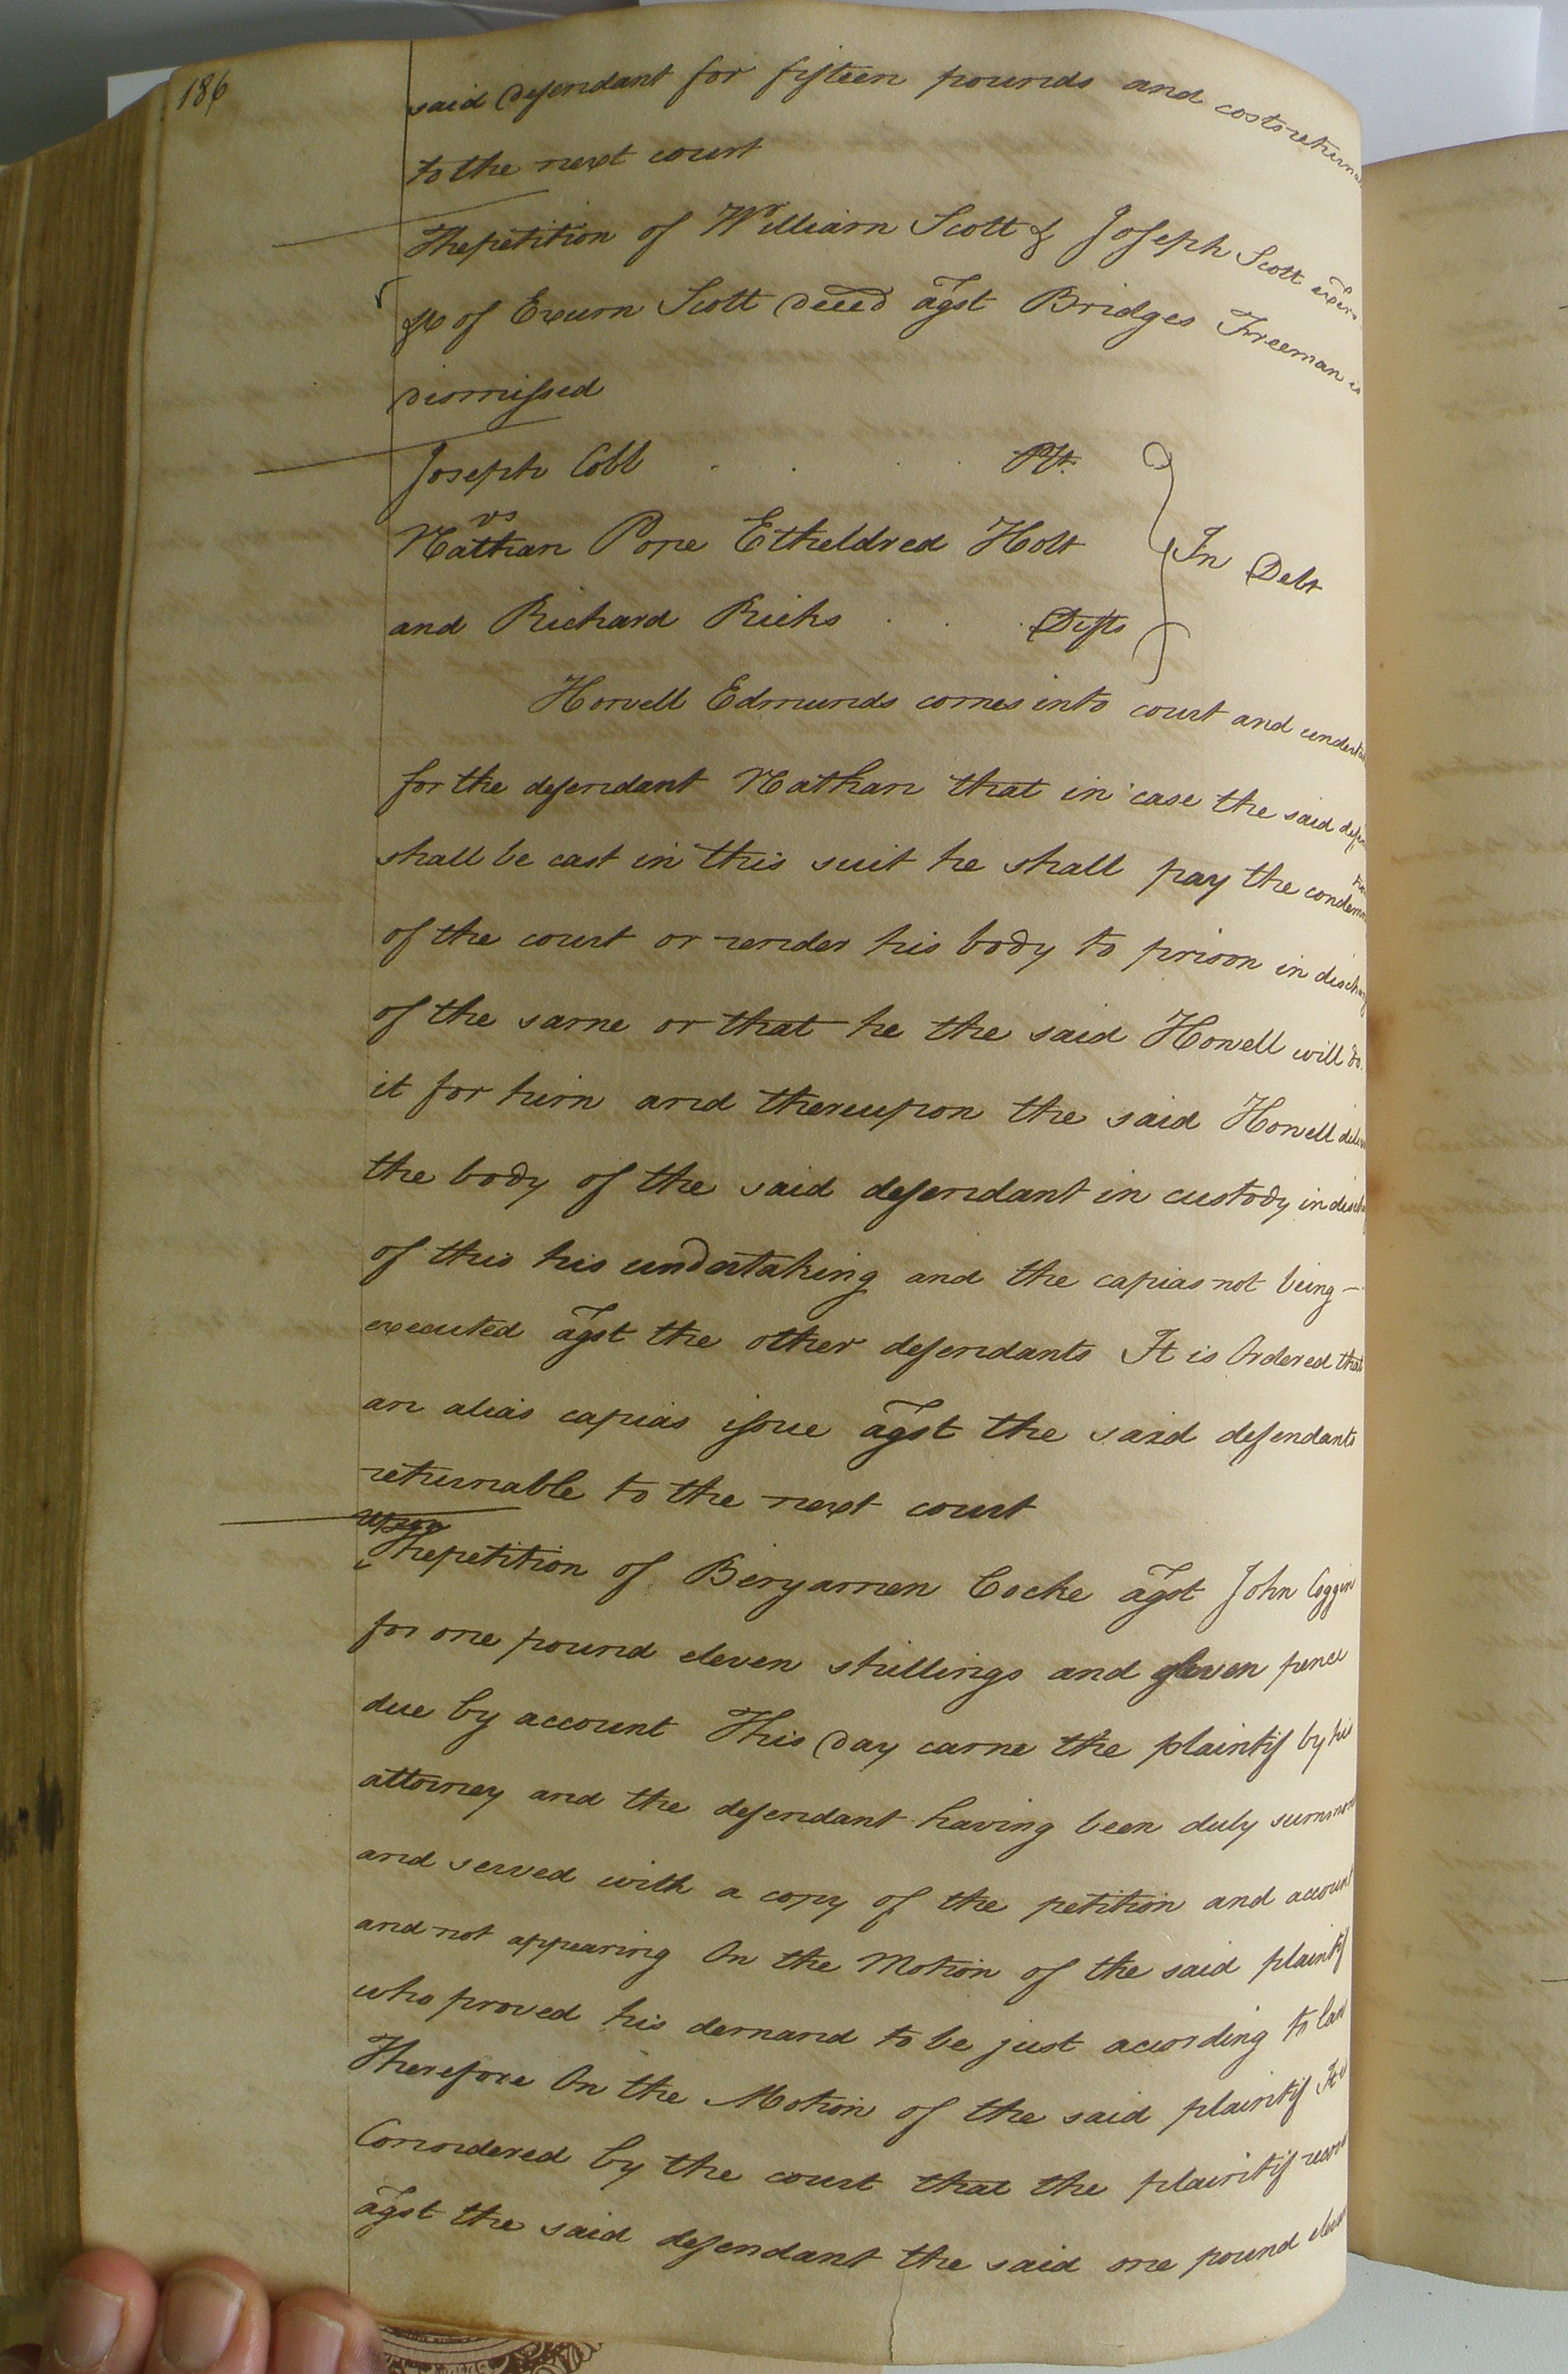 186
said defendant for fifteen pounds and costs
to the next court
The petition of William Scott & Joseph Scott
&c of Exum Scott decd agst Bridges Freeman is
dismissed
Joseph Cobb . . . Plt.
vs
Nathan Pope Etheldred Holt
In Debt
and Richard Ricks . . . Defts
Howell Edmunds comes into court and
for the defendant Nathan that in case the said
shall be cast in this suit he shall pay the
of the court or render his body to prison in
of the same or that he the said Howell will do
it for him and thereupon the said Howell
the body of the said defendant in custody in
of this his undertaking and the capias not being
executed agst the other defendants It is Ordered that
an alias capias issue agst the said defendants
returnable to the next court
Upon
The petition of Benjamen Cocke agst John Coggin
for one pound eleven shillings and eleven pence
due by account This day came the plaintif by his
attorney and the defendant having been duly
and served with a copy of the petition and account
and not appearing On the Motion of the said plaintif
who proved his demand to be just acording to law
Therefore On the Motion of the said plaintif It is
Considered by the court that the plaintif
agst the said defendant the said one pound